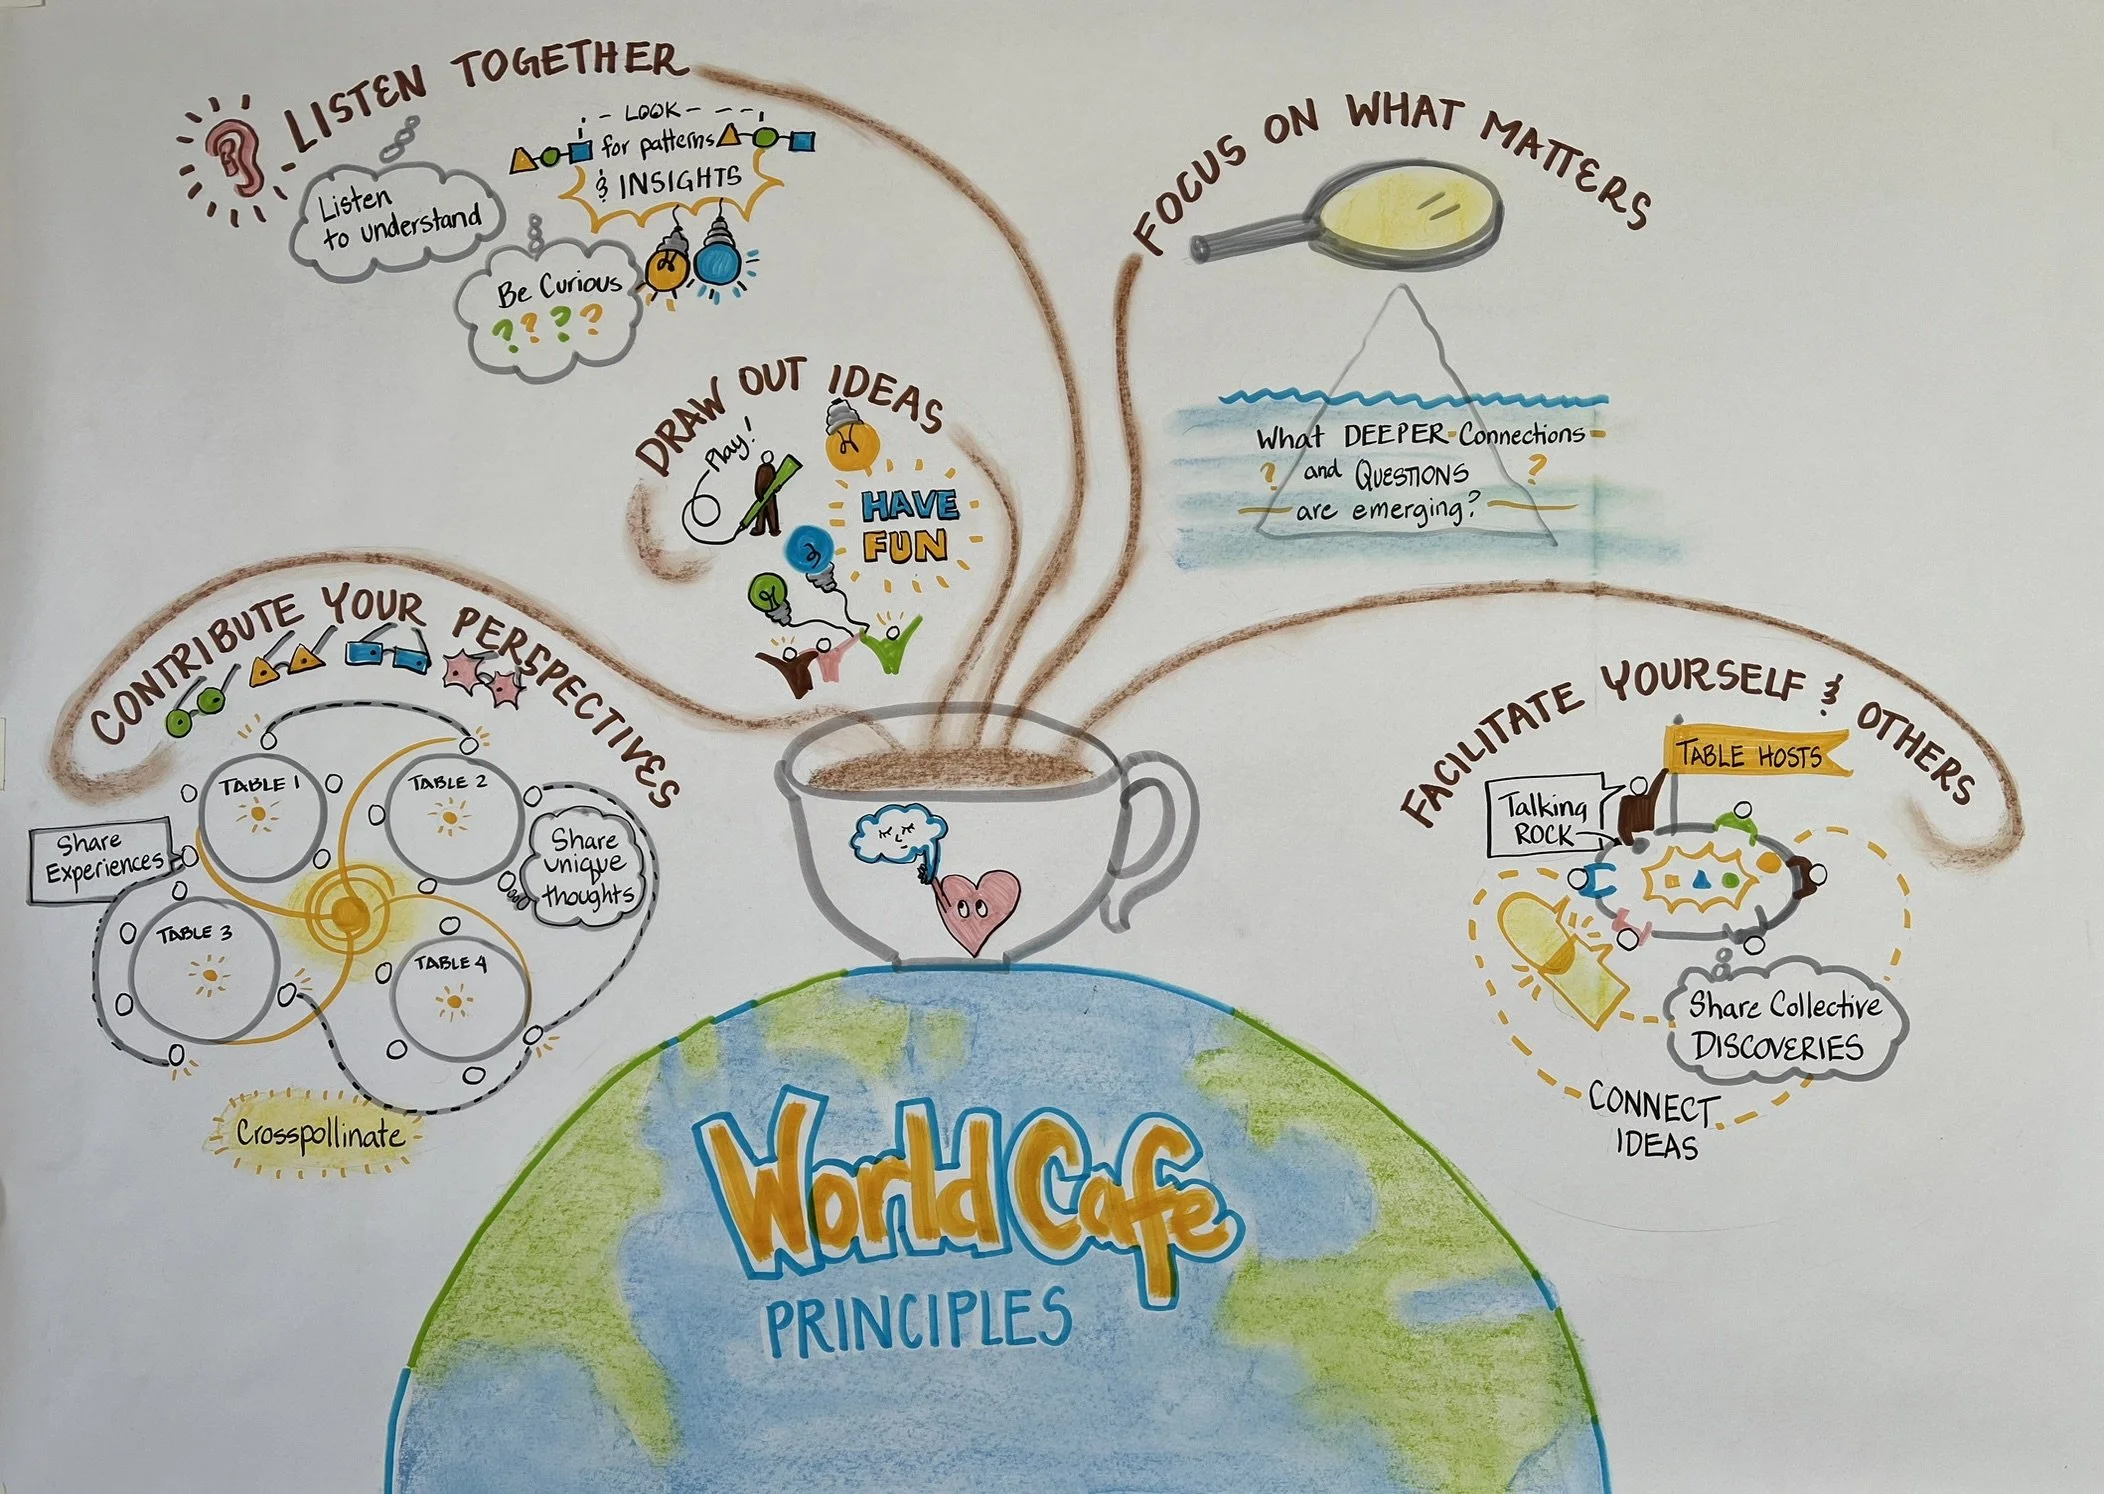 LISTEN TOGETHER
Listen
to understand
LOOK
for patterns
& INSIGHTS
Be Curious
? ? ? ?
FOCUS ON WHAT MATTERS
What DEEPER Connections
? and QUESTIONS ?
are emerging?
DRAW OUT IDEAS
Play!
HAVE
FUN
CONTRIBUTE YOUR PERSPECTIVES
TABLE 1
TABLE 2
Share
Experiences
Share
unique
thoughts
TABLE 3
TABLE 4
Crosspollinate
FACILITATE YOURSELF & OTHERS
TABLE HOSTS
Talking
ROCK
Share Collective
DISCOVERIES
CONNECT
IDEAS
World Cafe
PRINCIPLES